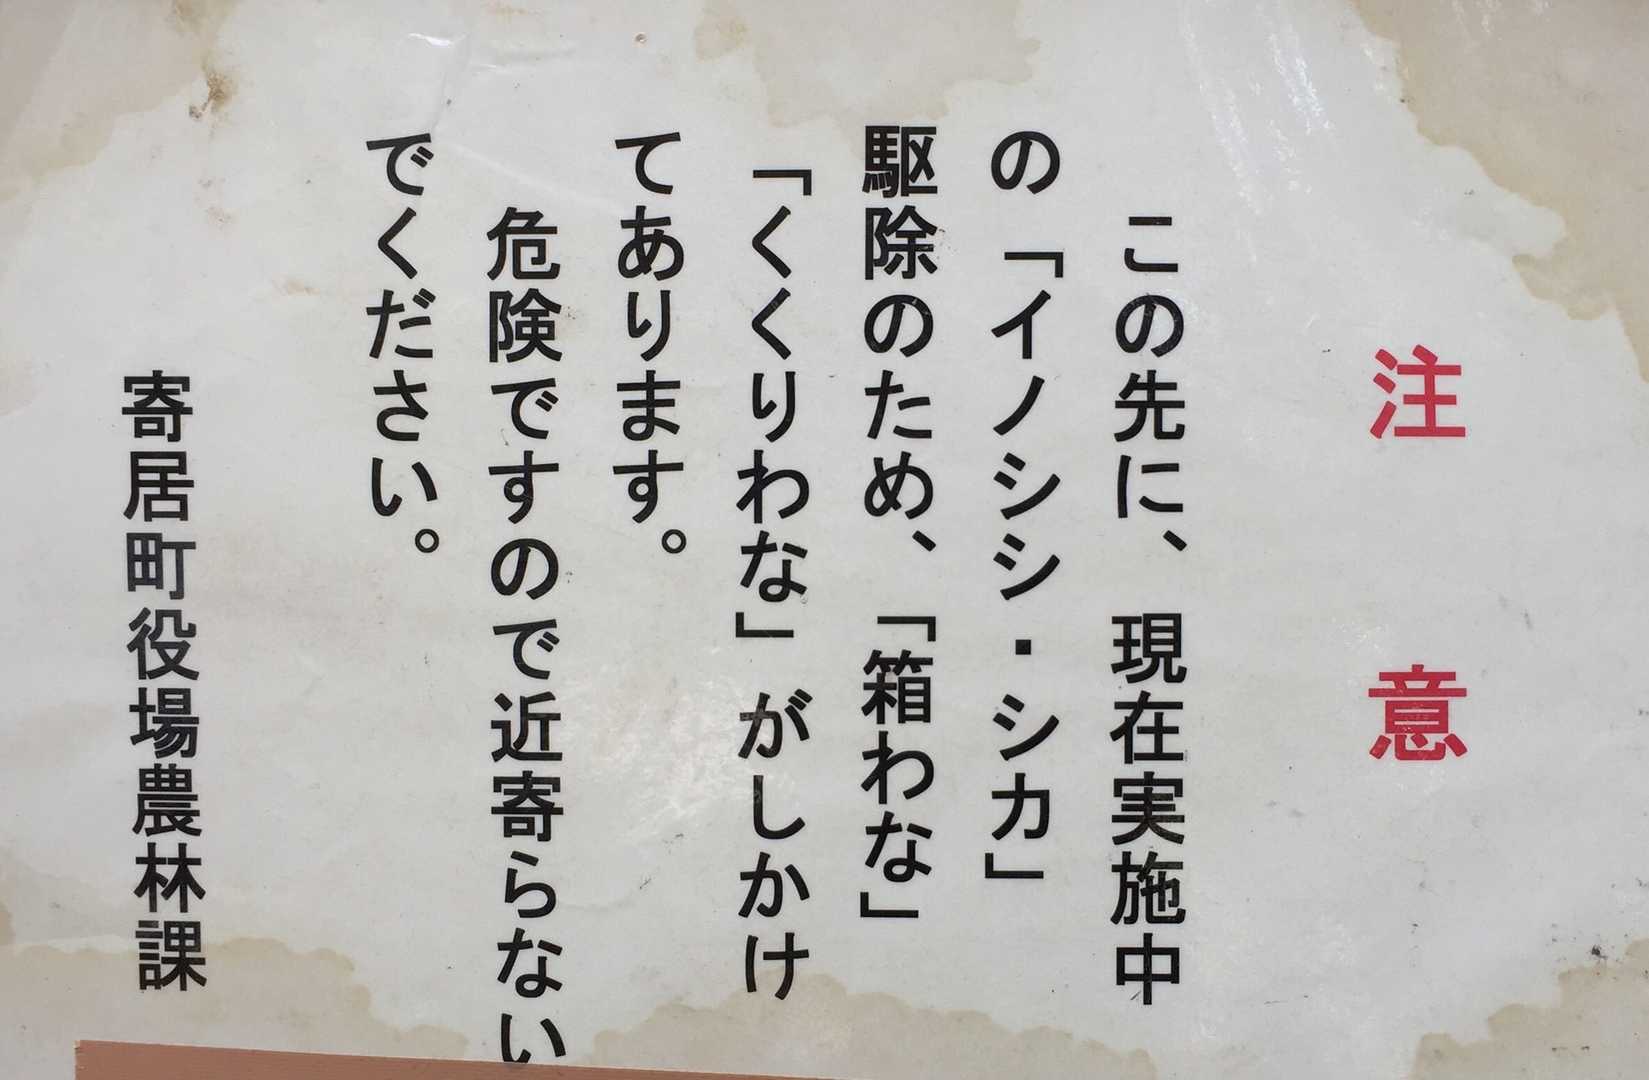 注意
この先に、現在実施中
の「イノシシ・シカ」
駆除のため、「箱わな」
「くくりわな」がしかけ
てあります。
危険ですので近寄らない
でください。
寄居町役場農林課